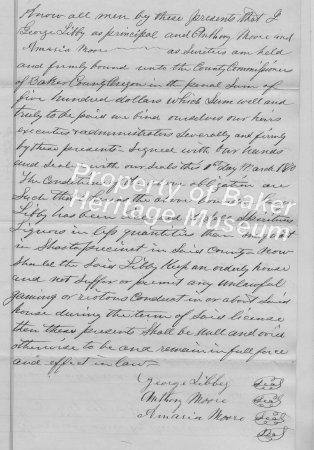 Know all men by these presents that I
George Libby as principal and Anthony Moore and
Amaria Moore as Sureties are held
and firmly bound unto the County Commissioner
of Baker County Oregon in the penal Sum of
five hundred dollars which Sum well and
truly to be paid we bind ourselves our heirs
executors administrators Severally and firmly
by these presents Signed with our hands
and Seal with our Seals this 1st Day March
The Condition of the above obligation are
Such that whereas the above
Libby has been Spirituous
Liquors in less quantities than one
in Shasta precinct in Said County Now
Should the Said Libby Keep an orderly house
and not Suffer or permit any unlawful
gaming or riotous Conduct in or about Said
house during the term of Said license
then these presents Shall be Null and void
otherwise to be and remain in full force
and effect in law
George Libby Seal
Anthony Moore Seal
Amaria Moore Seal
Seal
Property Of Baker
Heritage Museum